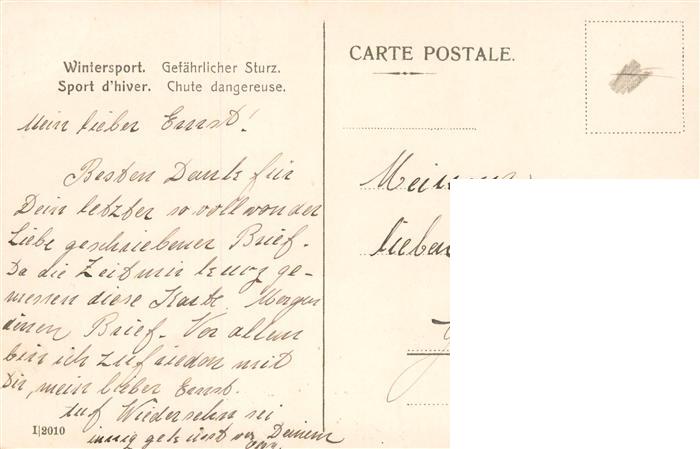 Wintersport. Gefährlicher Sturz.
Sport d'hiver. Chute dangereuse.
CARTE POSTALE.
Mein lieber Ernst!
Besten Dank für
Dein letzter so voll von der
Liebe geschriebener Brief.
Da die Zeit mir kurz ge-
messen diese Karte. Morgen
einen Brief. Vor allem
bin ich zufrieden mit
Dir, mein lieber Ernst.
Auf Wiedersehn sei
innig geküsst von Deinem
I|2010
lieben